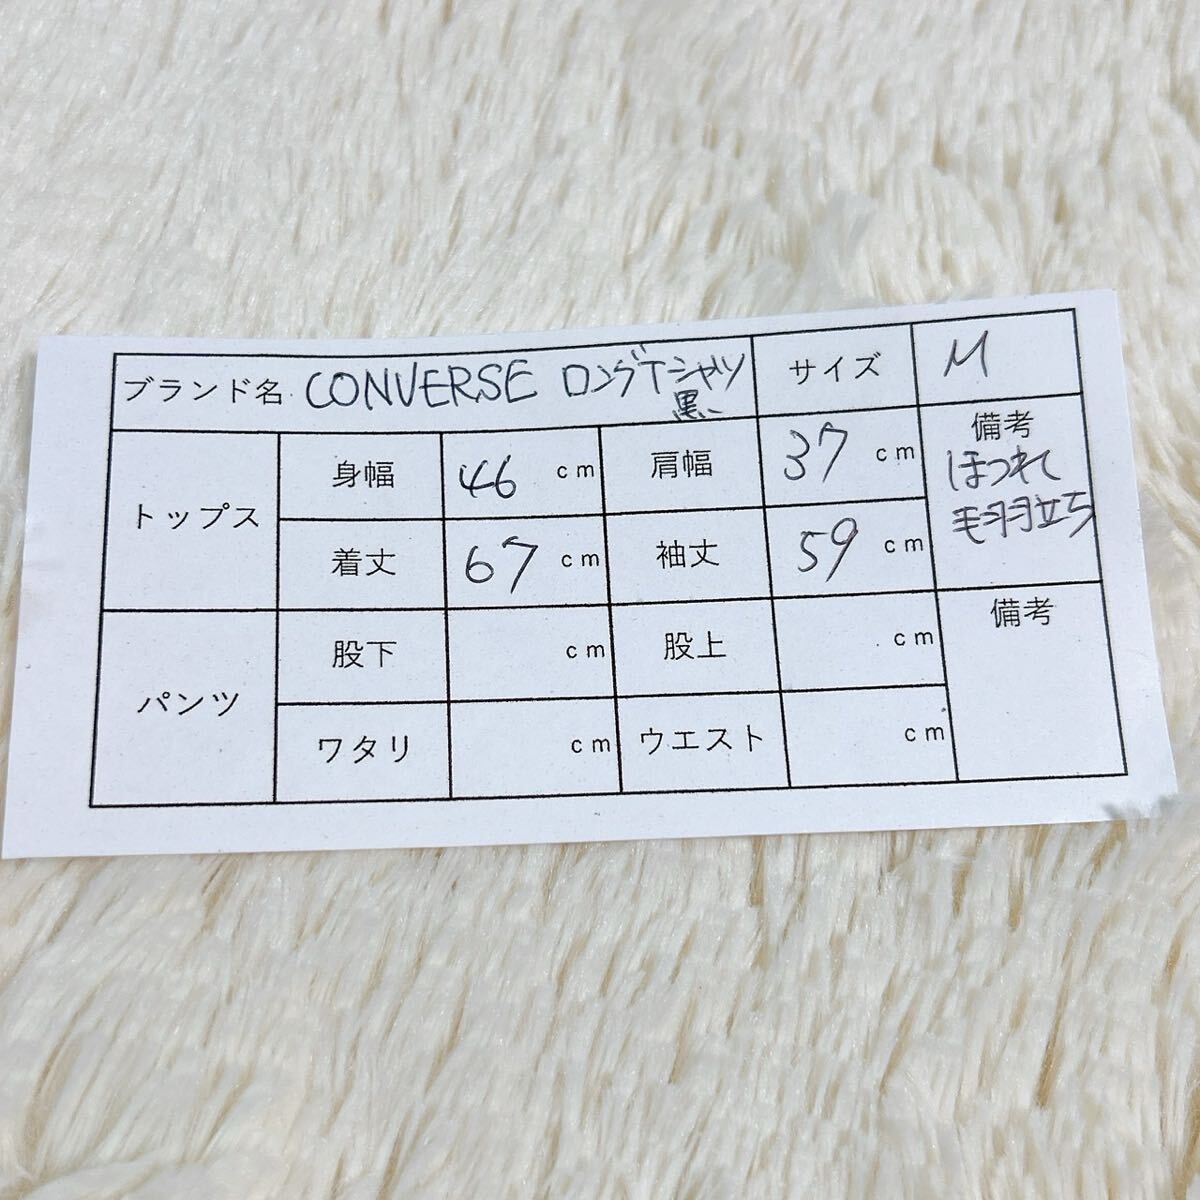 ブランド名 CONVERSE ロングTシャツ 黒 サイズ M
トップス 身幅 46 cm 肩幅 37 cm 備考
ほつれ
毛羽立ち
着丈 67 cm 袖丈 59 cm
パンツ 股下 cm 股上 cm 備考
ワタリ cm ウエスト cm